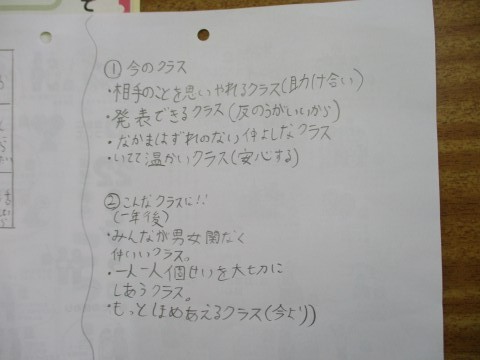 ① 今のクラス
・相手のことを思いやれるクラス(助け合い)
・発表できるクラス(反のうがいいから)
・なかまはずれのない仲よしなクラス
・いてて温かいクラス(安心する)
② こんなクラスに!!
(一年後)
・みんなが男女関なく
仲いいクラス。
・一人一人個せいを大切に
しあうクラス。
・もっとほめあえるクラス(今より)